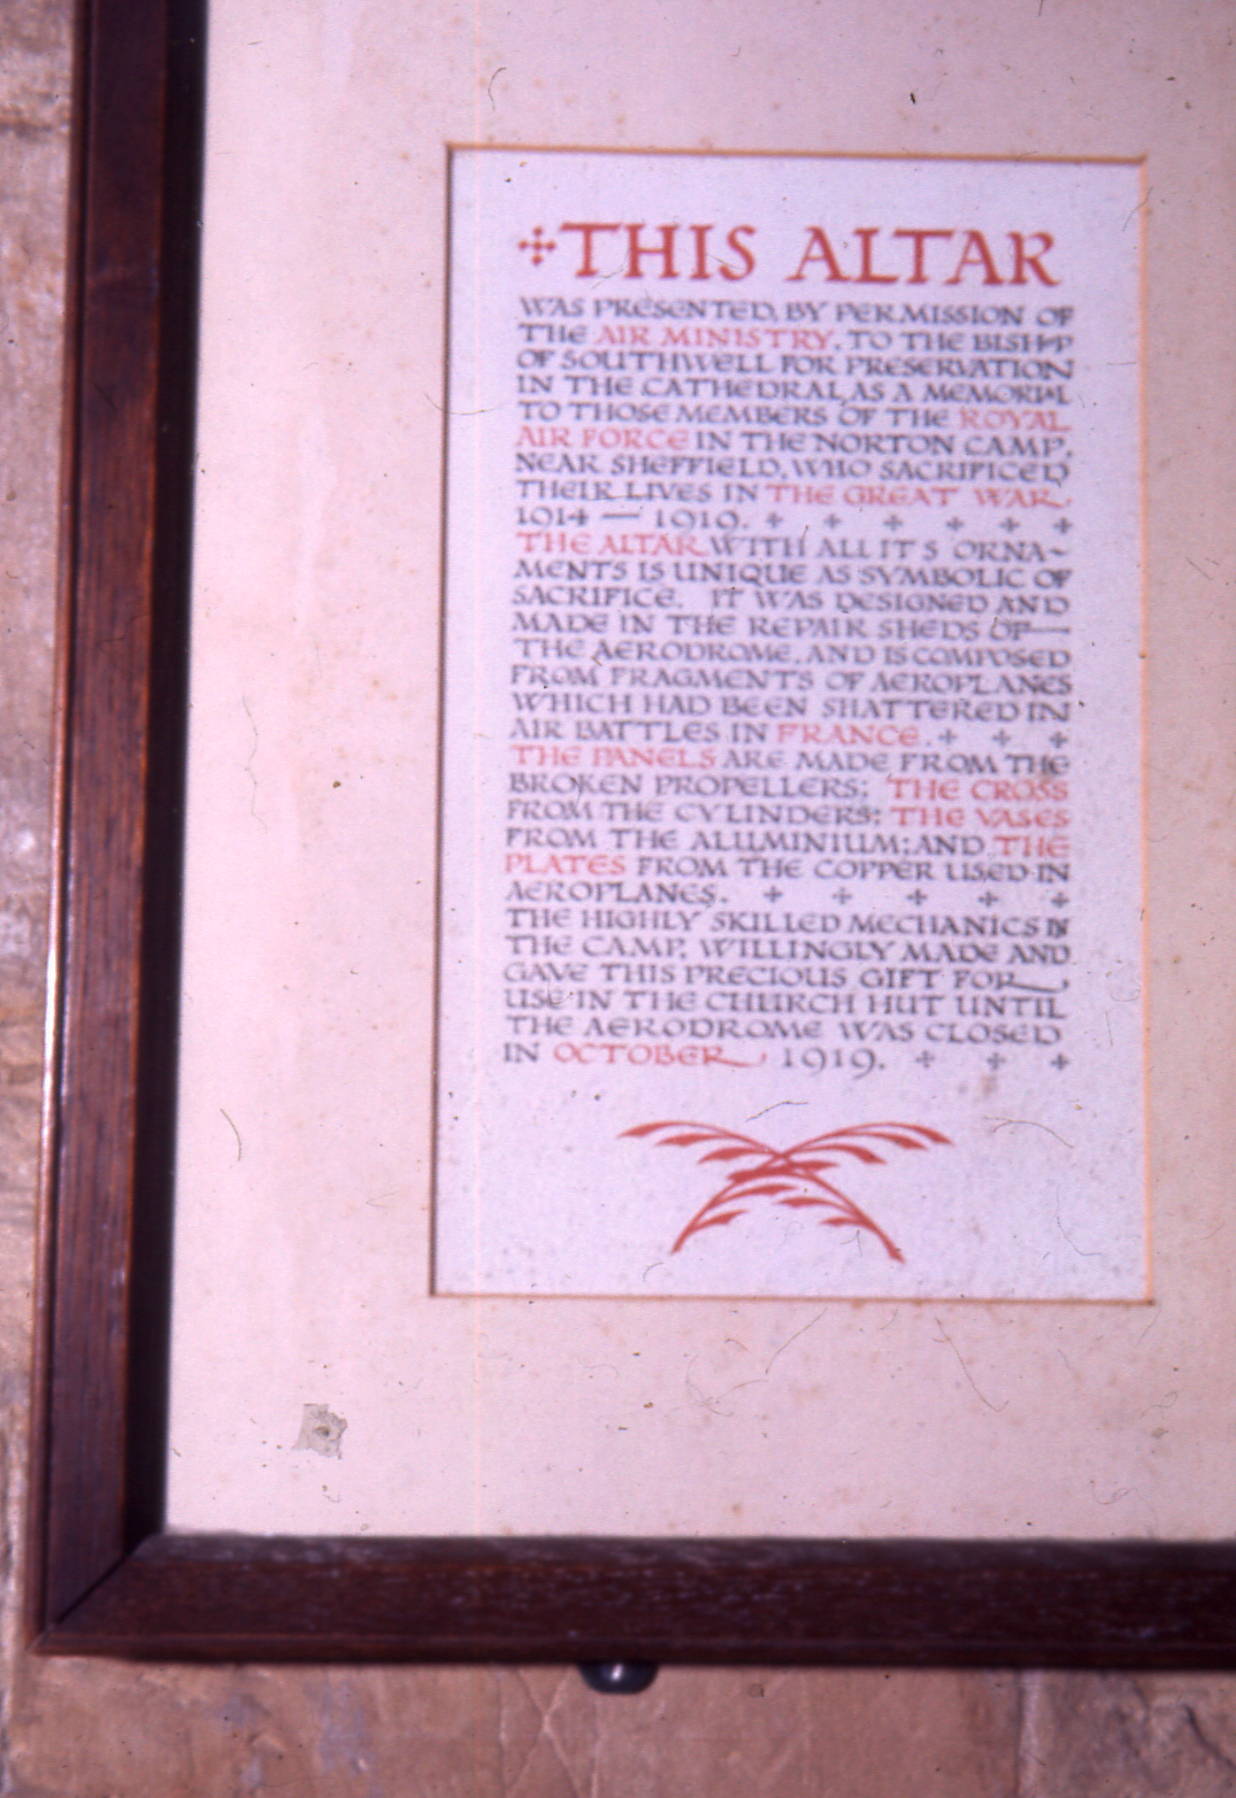 ✣THIS ALTAR
WAS PRESENTED, BY PERMISSION OF
THE AIR MINISTRY, TO THE BISHOP
OF SOUTHWELL FOR PRESERVATION
IN THE CATHEDRAL, AS A MEMORIAL
TO THOSE MEMBERS OF THE ROYAL
AIR FORCE IN THE NORTON CAMP,
NEAR SHEFFIELD, WHO SACRIFICED
THEIR LIVES IN THE GREAT WAR
1914 — 1919. + + + + + +
THE ALTAR WITH ALL ITS ORNA-
MENTS IS UNIQUE AS SYMBOLIC OF
SACRIFICE. IT WAS DESIGNED AND
MADE IN THE REPAIR SHEDS OF—
THE AERODROME, AND IS COMPOSED
FROM FRAGMENTS OF AEROPLANES
WHICH HAD BEEN SHATTERED IN
AIR BATTLES IN FRANCE. + + +
THE PANELS ARE MADE FROM THE
BROKEN PROPELLERS: THE CROSS
FROM THE CYLINDERS: THE VASES
FROM THE ALUMINIUM: AND THE
PLATES FROM THE COPPER USED IN
AEROPLANES. + + + + +
THE HIGHLY SKILLED MECHANICS IN
THE CAMP, WILLINGLY MADE AND
GAVE THIS PRECIOUS GIFT FOR
USE IN THE CHURCH HUT UNTIL
THE AERODROME WAS CLOSED
IN OCTOBER, 1919. + + +